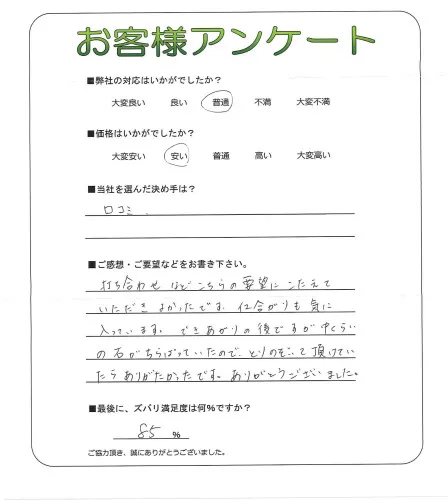 お客様アンケート
■弊社の対応はいかがでしたか？
大変良い 良い 普通 不満 大変不満
■価格はいかがでしたか？
大変安い 安い 普通 高い 大変高い
■当社を選んだ決め手は？
口コミ．
■ご感想・ご要望などをお書き下さい。
打ち合わせなどこちらの要望にこたえて
いただきよかったです。仕合がりも気に
入っています。できあがりの後ですが中くらい
の石がちらばっていたので、とりのぞいて頂けてい
たらありがたかったです。ありがとうございました。
■最後に、ズバリ満足度は何％ですか？
85 %
ご協力頂き、誠にありがとうございました。